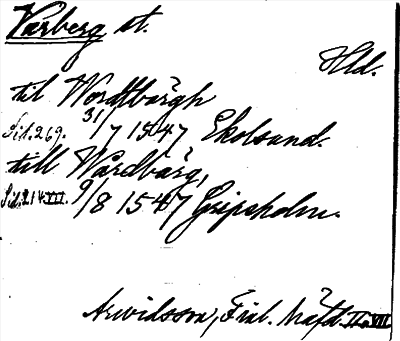 Varberg st.
Hld.
till Wordtbärgh
Sid. 269. 31/7 1547 Ekolsund.
till Wårdbärg,
Sid. 214 VII. 9/8 1547 Gripsholm.
Arwidsson, Finl. Häfd. II VII